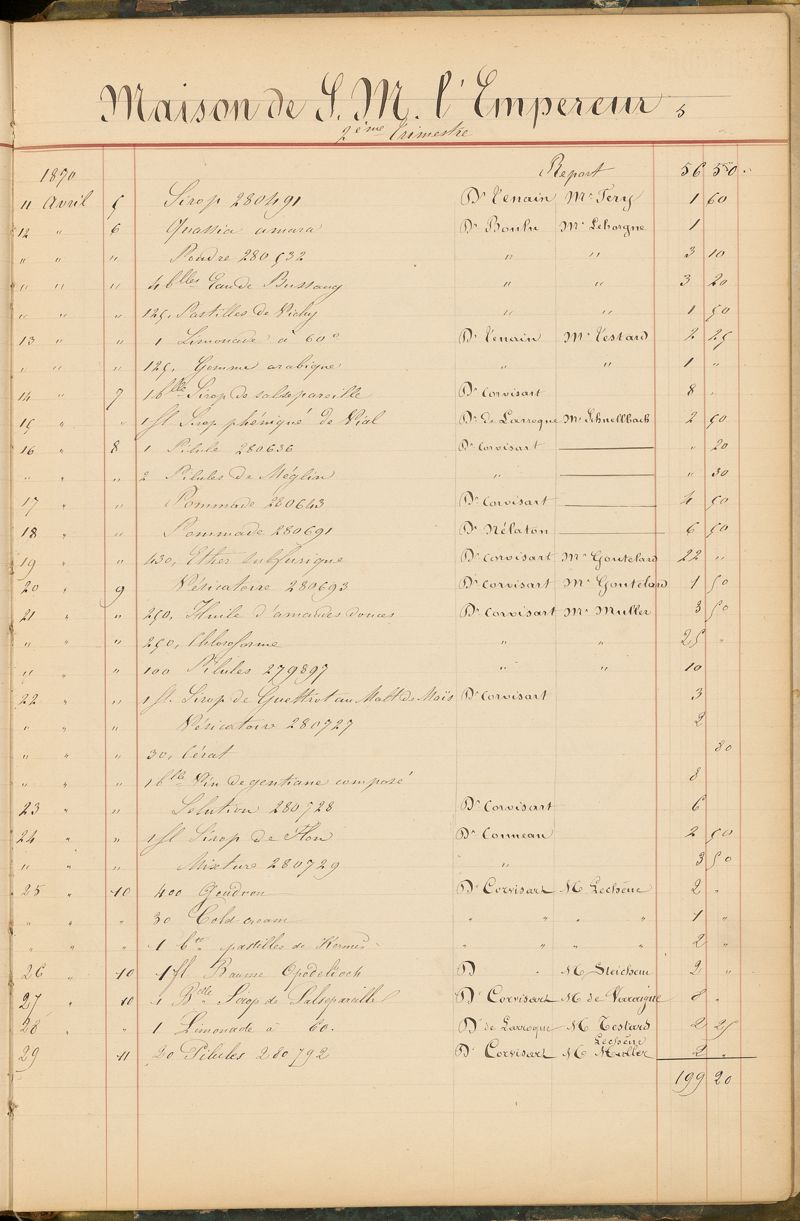 Maison de S. M. l'Empereur 5
2ème Trimestre
1870 Report 56 50
11 Avril 5 Sirop 280491 Dr Tenain Mr Fery 1 60
12 " 6 Quassia amara Dr Mr Lehorgne 1
" " " Poudre 280532 " " 3 10
" " " 4 blles Eau de Bussang " " 3 20
" " " 125, Pastilles de Vichy " " 1 50
13 " " 1 Limonade à 60° Dr Tenain Mr Testard 2 25
" " " 125, Gomme arabique " " 1 "
14 " 7 1 blle Sirop de salsepareille Dr Corvisart 8 "
15 " " 1 fl Sirop phéniqué de Vial Dr de Larroque Mr Schnellbach 2 50
16 " 8 1 Pilule 280636 Dr Corvisart " 20
" " " 2 Pilules de Méglin " " 30
17 " " Pommade 280643 Dr Corvisart 4 50
18 " " Pommade 280691 Dr Nélaton 6 50
19 " " 430, Ether sulfurique Dr Corvisart Mr Goutelard 22 "
20 " 9 Vésicatoire 280693 Dr Corvisart Mr Goutelard 1 50
21 " " 250, Huile d'amandes douces Dr Corvisart Mr Muller 3 50
" " " 250, Chloroforme " " 25 "
" " " 100 Pilules 279897 " " 10
22 " " 1 fl. Sirop de Guettrot au Malt de Maïs Dr Corvisart 3
" " " Vésicatoire 280727 2
" " " 30, Cérat 80
" " " 1 blle Vin de gentiane composé 8
23 " " Solution 280728 Dr Corvisart 6
24 " " 1 fl Sirop de Flon Dr Conneau 2 50
" " " Mixture 280729 " 3 50
25 " 10 400 Goudron Dr Corvisart M Lechêne 2 "
" " " 30 Cold cream " " " " 1 "
" " " 1 bte pastilles de Kermès " " " " 2 "
26 " 10 1 fl Baume Opodeldoch D " M Steichem 2 "
27 " 10 1 Blle Sirop de Salsepareille Dr Corvisart M de Varaigne 8 "
28 " " 1 Limonade à 60. Dr de Larroque M Testard 2 25
Lechêne
29 11 20 Pilules 280792 Dr Corvisart M Muller 2 "
199 20